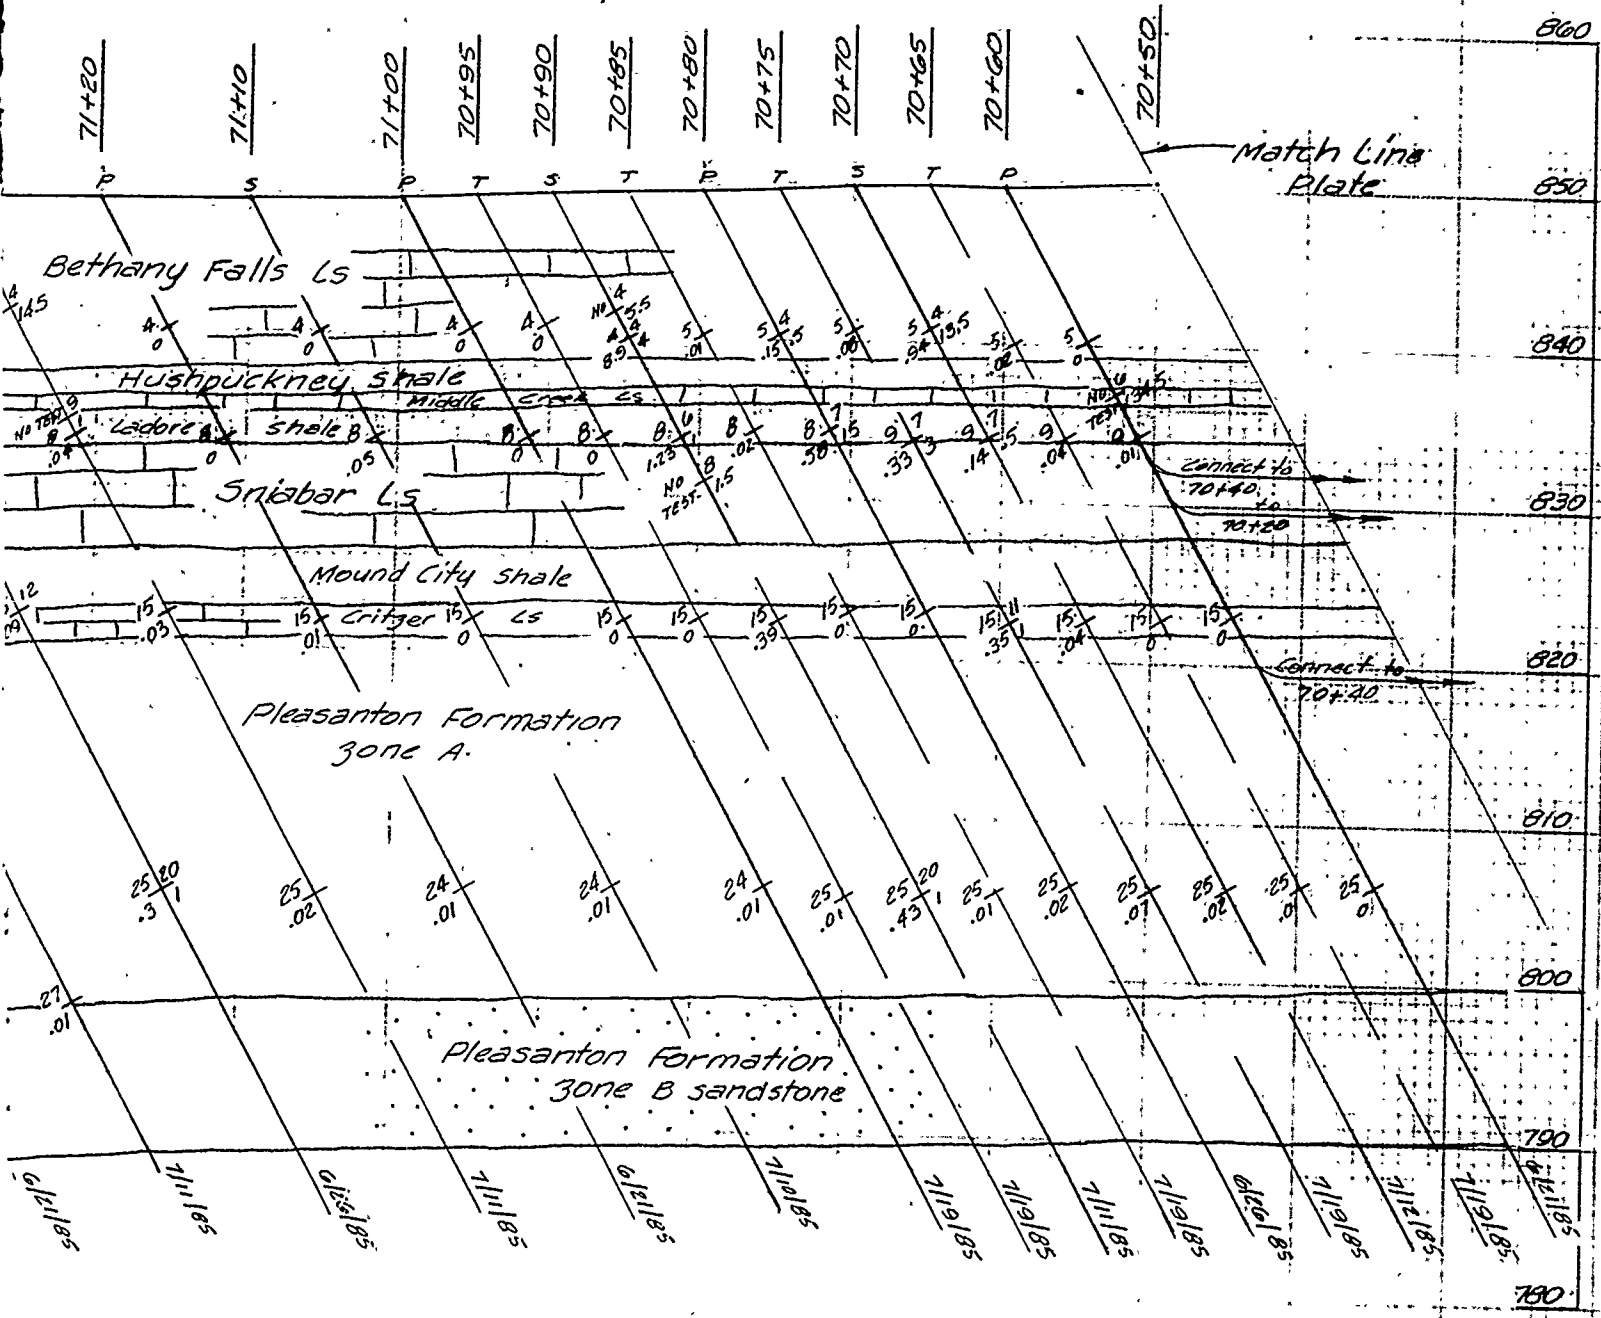 860
71+20
71+10
71+00
70+95
70+90
70+85
70+80
70+75
70+70
70+65
70+60
70+50
Match Line
Plate
P S P T S T P T S T P
850
Bethany Falls Ls
4
14.5
4
0
4
0
4
0
4
0
4
NO 5.5
4 4
8.9 4
5
.01
5 4
.15 .5
5
5 4
.94 13.5
5
.02
5
0
840
Hushpuckney Shale
Middle Creek Ls
6
NO
TEST
NO TEST 9
8 1
Ladore Shale
8
0
8
.05
8
0
8
0
8 6
1.23 1
8
.02
8 7
.58 .5
9 7
.33 3
9 7
.14 .5
9
.04
9
.01
8
NO 1.5
TEST
Connect to
70+40
to
70+20
Sniabar Ls
830
Mound City Shale
12
15
.03
15
.01
Critzer Ls
15
0
15
0
15
0
15
.39
15
0
15
0
15 11
.35 1
15
.04
15
0
15
0
820
Connect to
70+40
Pleasanton Formation
Zone A.
810
25 20
.3 1
25
.02
24
.01
24
.01
24
.01
25
.01
25 20
.43 1
25
.01
25
.02
25
.07
25
.02
25
.0
25
0
800
27
.01
Pleasanton Formation
Zone B sandstone
790
6/21/85
7/11/85
6/26/85
7/11/85
6/21/85
7/10/85
7/19/85
7/19/85
7/11/85
7/19/85
6/26/85
7/19/85
7/12/85
7/19/85
780